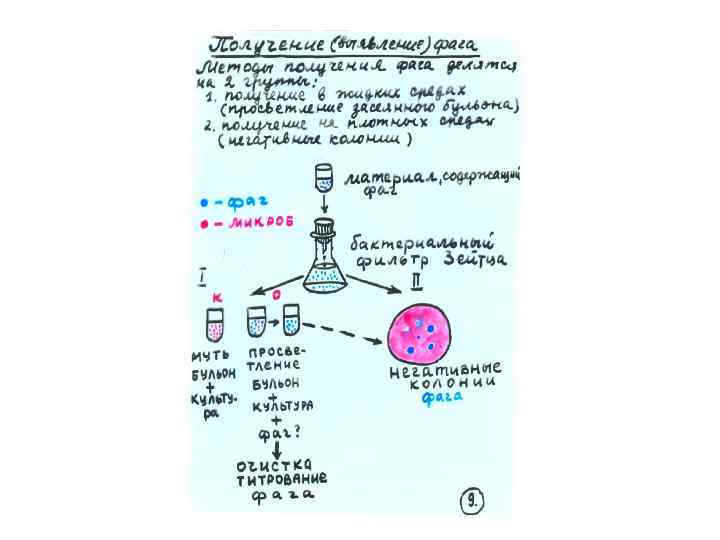 Получение (выявление) фага
Методы получения фага делятся
на 2 группы:
1. получение в жидких средах
(просветление засеянного бульона)
2. получение на плотных средах
(негативные колонии)
материал, содержащий
фаг
- фаг
- микроб
бактериальный
фильтр Зейтца
I
II
К
О
муть
бульон
+
культу-
ра
просве-
тление
бульон
+
культура
+
фаг?
очистка
титрование
фага
негативные
колонии
фага
9.